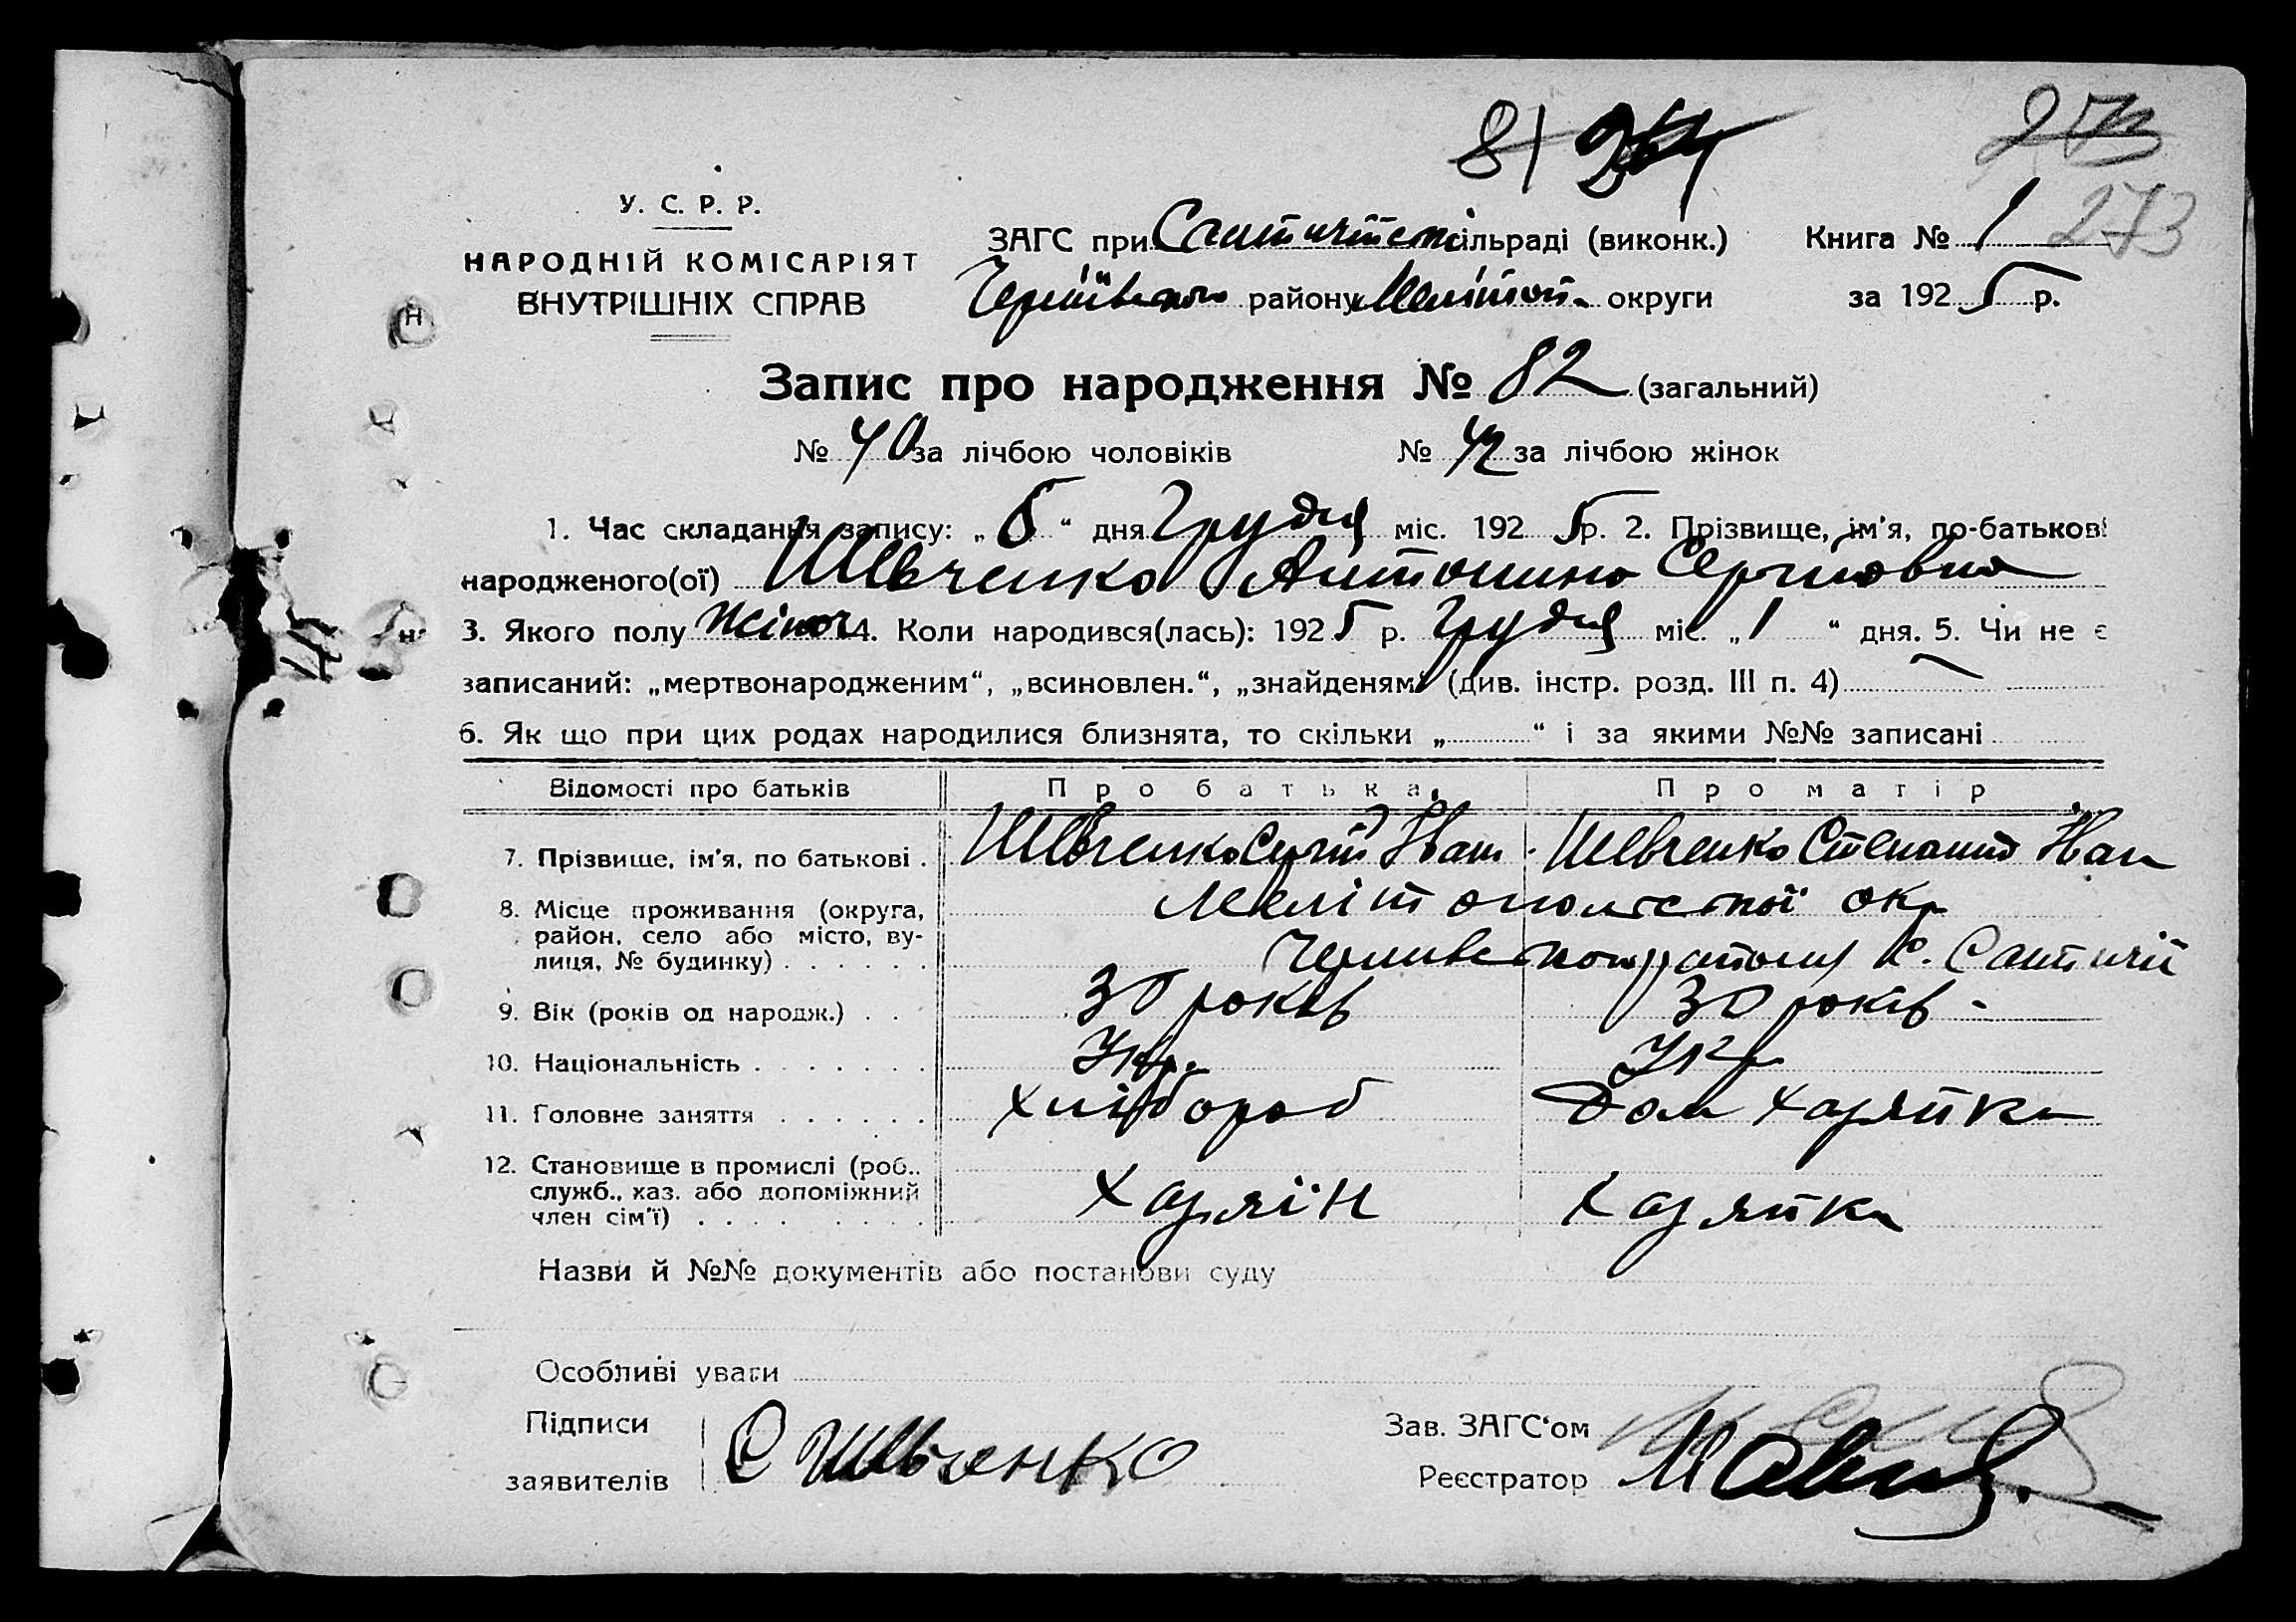 8/ 264
273
У. С. Р. Р.
НАРОДНІЙ КОМІСАРІЯТ
ВНУТРІШНІХ СПРАВ
ЗАГС при сільраді (виконк.) Книга № 1 273
району округи за 192 5 р.
Запис про народження № 82 (загальний)
№ 40 за лічбою чоловіків № 42 за лічбою жінок
1. Час складання запису: „ 5 “ дня Грудня міс. 192 5 р. 2. Прізвище, ім'я, по-батькові
народженого(ої) Шевченко Антонина Сергіївна
3. Якого полу жіноч 4. Коли народився(лась): 192 5 р. Грудня міс. „ 1 “ дня. 5. Чи не є
записаний: „мертвонародженим“, „всиновлен.“, „знайденям“ (див. інстр. розд. III п. 4) —
6. Як що при цих родах народилися близнята, то скільки „ “ і за якими №№ записані
Відомості про батьків Про батька Про матір
7. Прізвище, ім'я, по батькові . Шевченко Сергій Іван Шевченко Степанида Іван
8. Місце проживання (округа, Мелітопольської окр
район, село або місто, ву-
лиця, № будинку) . . . . . . району
9. Вік (років од народж.) . . 30 років 30 років -
10. Національність . . . . . . . Укр. Укр
11. Головне заняття . . . . . . Хлібороб Дом хазяйка
12. Становище в промислі (роб.,
служб., хаз. або допоміжний Хазяїн Хазяйка
член сім'ї) . . . . . . . .
Назви й №№ документів або постанови суду
Особливі уваги
Підписи Зав. ЗАГС‘ом
заявителів С Шевченко Реєстратор